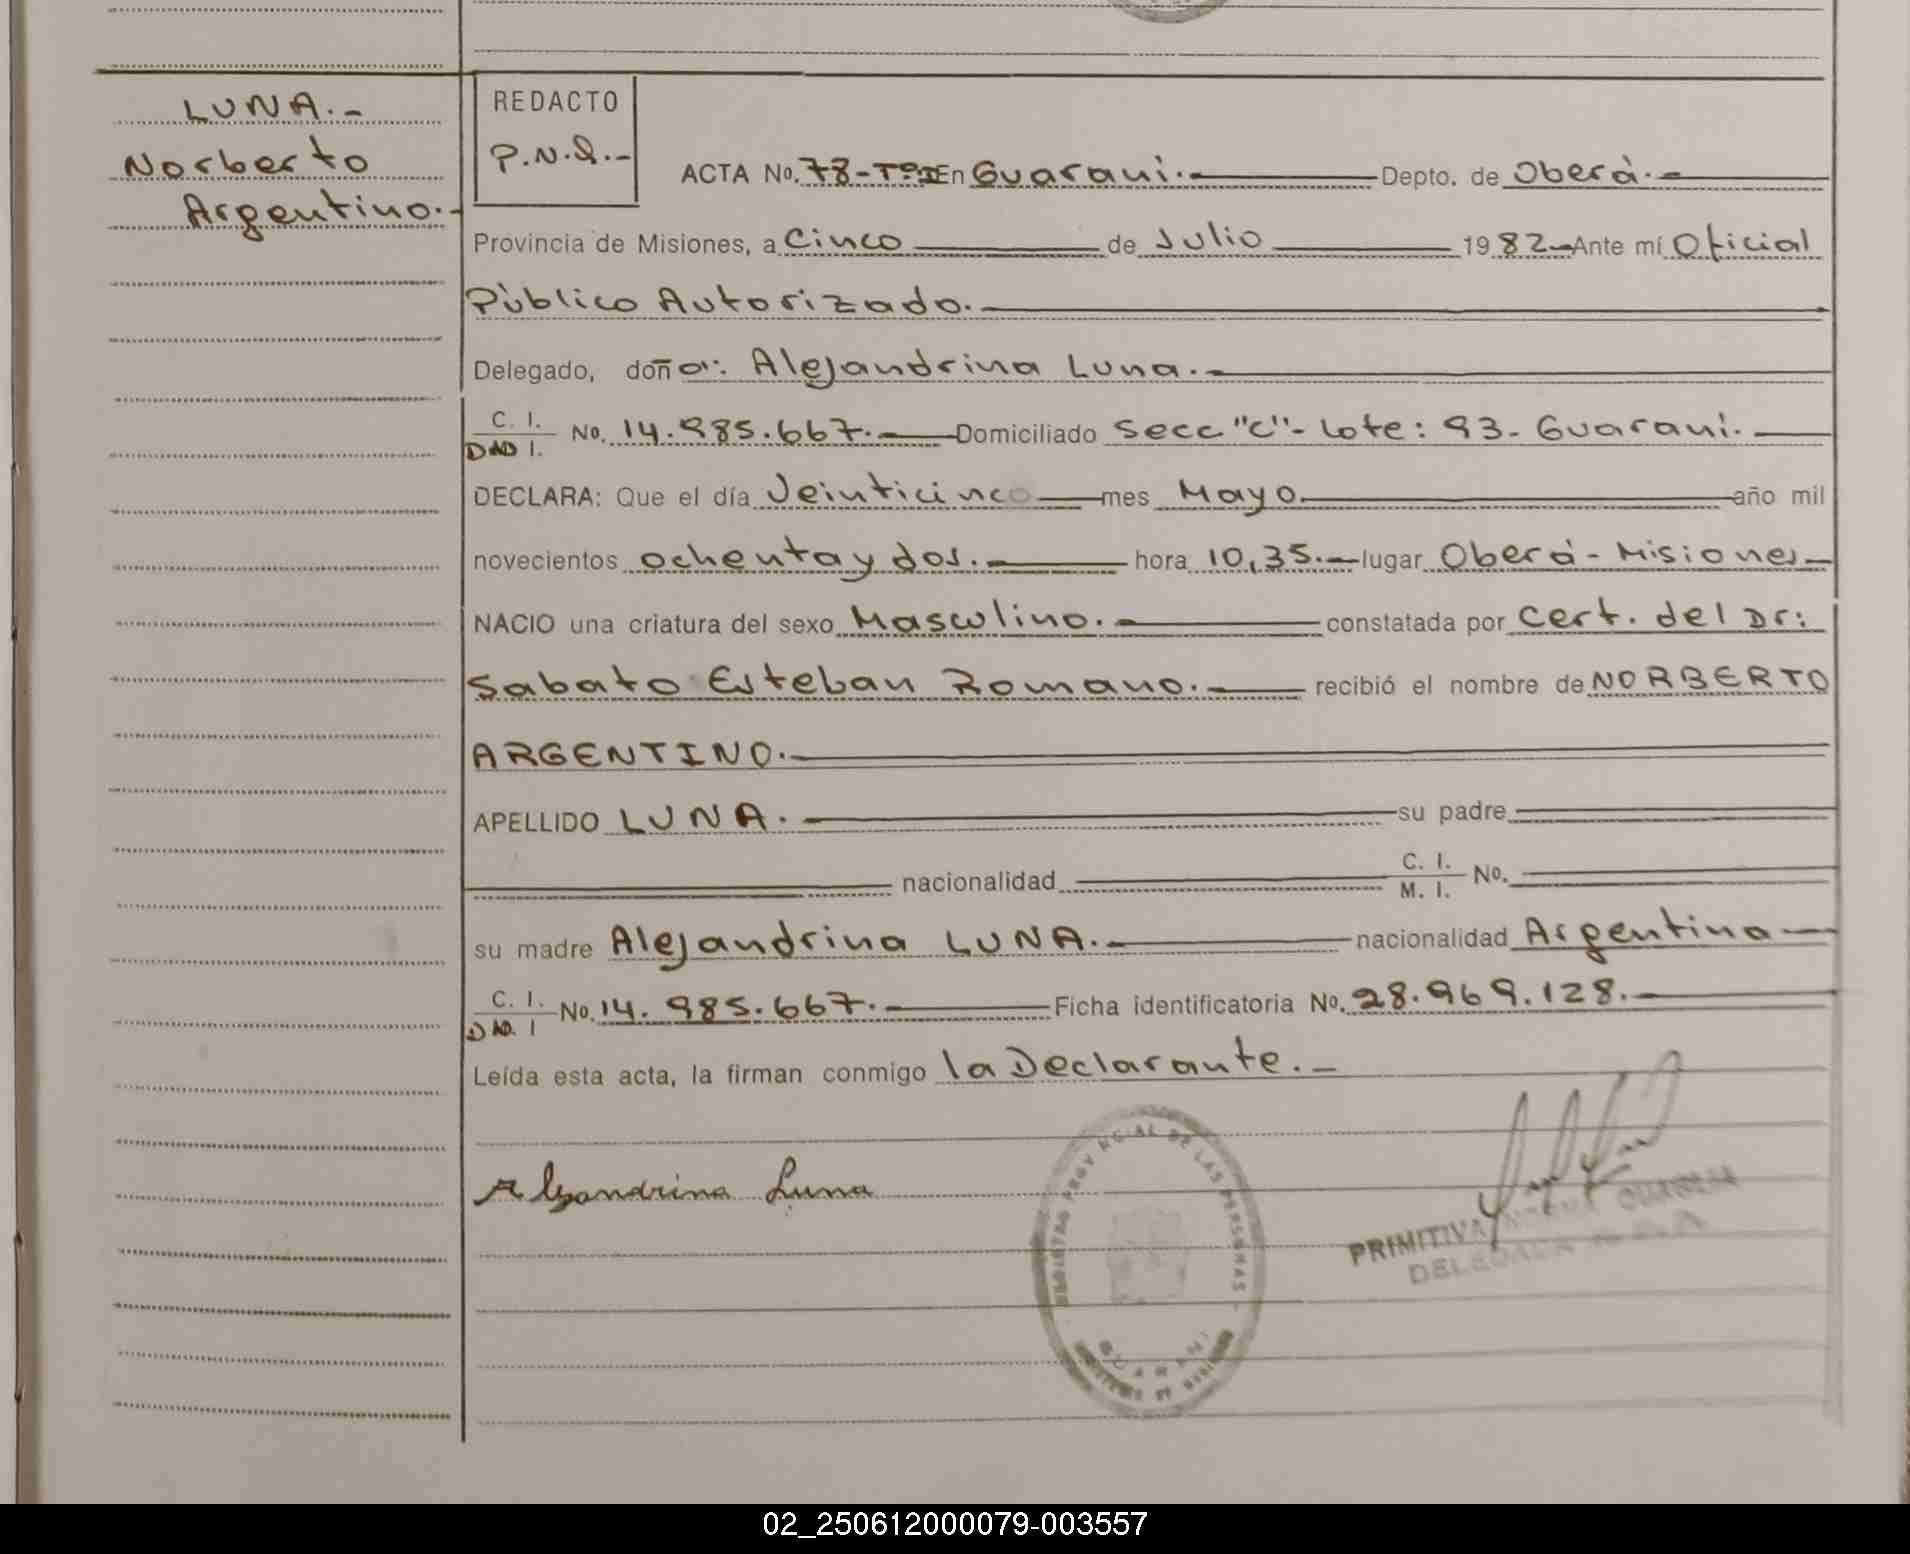 LUNA.-
Norberto
Argentino.-
REDACTO
P.N.Q.-
ACTA No. 78-TºI En Guaraní.- Depto. de Oberá.-
Provincia de Misiones, a Cinco de Julio 1982- Ante mí Oficial
Público Autorizado.-
Delegado, doña: Alejandrina Luna.-
C. I.
DND I. No. 14.985.667.- Domiciliado Secc "C"- Lote: 93- Guaraní.
DECLARA: Que el día Veinticinco mes Mayo año mil
novecientos ochenta y dos.- hora 10,35.- lugar Oberá - Misiones
NACIO una criatura del sexo Masculino.- constatada por Cert. del Dr:
Sabato Esteban Romano.- recibió el nombre de NORBERTO
ARGENTINO.-
APELLIDO LUNA.- su padre
nacionalidad C. I.
M. I. No.
su madre Alejandrina LUNA.- nacionalidad Argentina-
C. I.
DND. I No. 14.985.667.- Ficha identificatoria No. 28.969.128.-
Leída esta acta, la firman conmigo la Declarante.-
Alejandrina Luna
REGISTRO PROVINCIAL DE LAS PERSONAS -
GUARANI
PRIMITIVA NORMA
DELEGADA
02_250612000079-003557